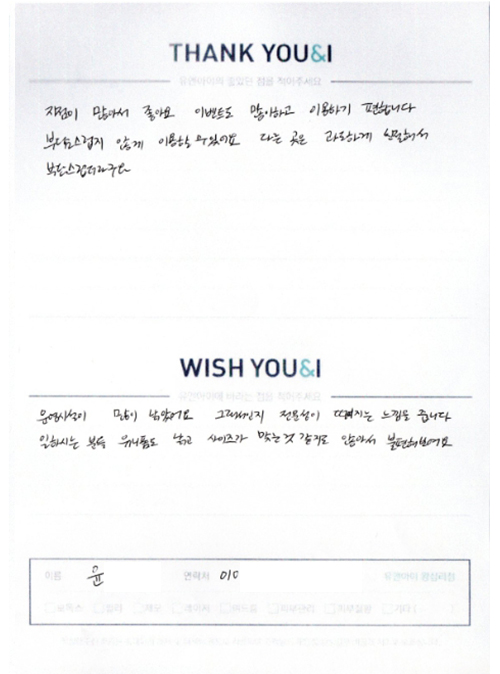 THANK YOU&I
유앤아이와 좋았던 점을 적어주세요
지점이 많아서 좋아요 이벤트도 많이하고 이용하기 편합니다
부담스럽지 않게 이용할 수 있어요 다른 곳은 과도하게 친절해서
부담스럽더라구요
WISH YOU&I
유앤아이에 바라는 점을 적어주세요
운영시설이 많이 낡았어요 그래서인지 전문성이 떨어지는 느낌을 줍니다
일하시는 분들 유니폼도 낡고 사이즈가 맞는것 같지도 않아서 불편해보여요
이름 윤 연락처 010 유앤아이 왕십리점
보톡스 필러 제모 리프팅 여드름 피부관리 기타